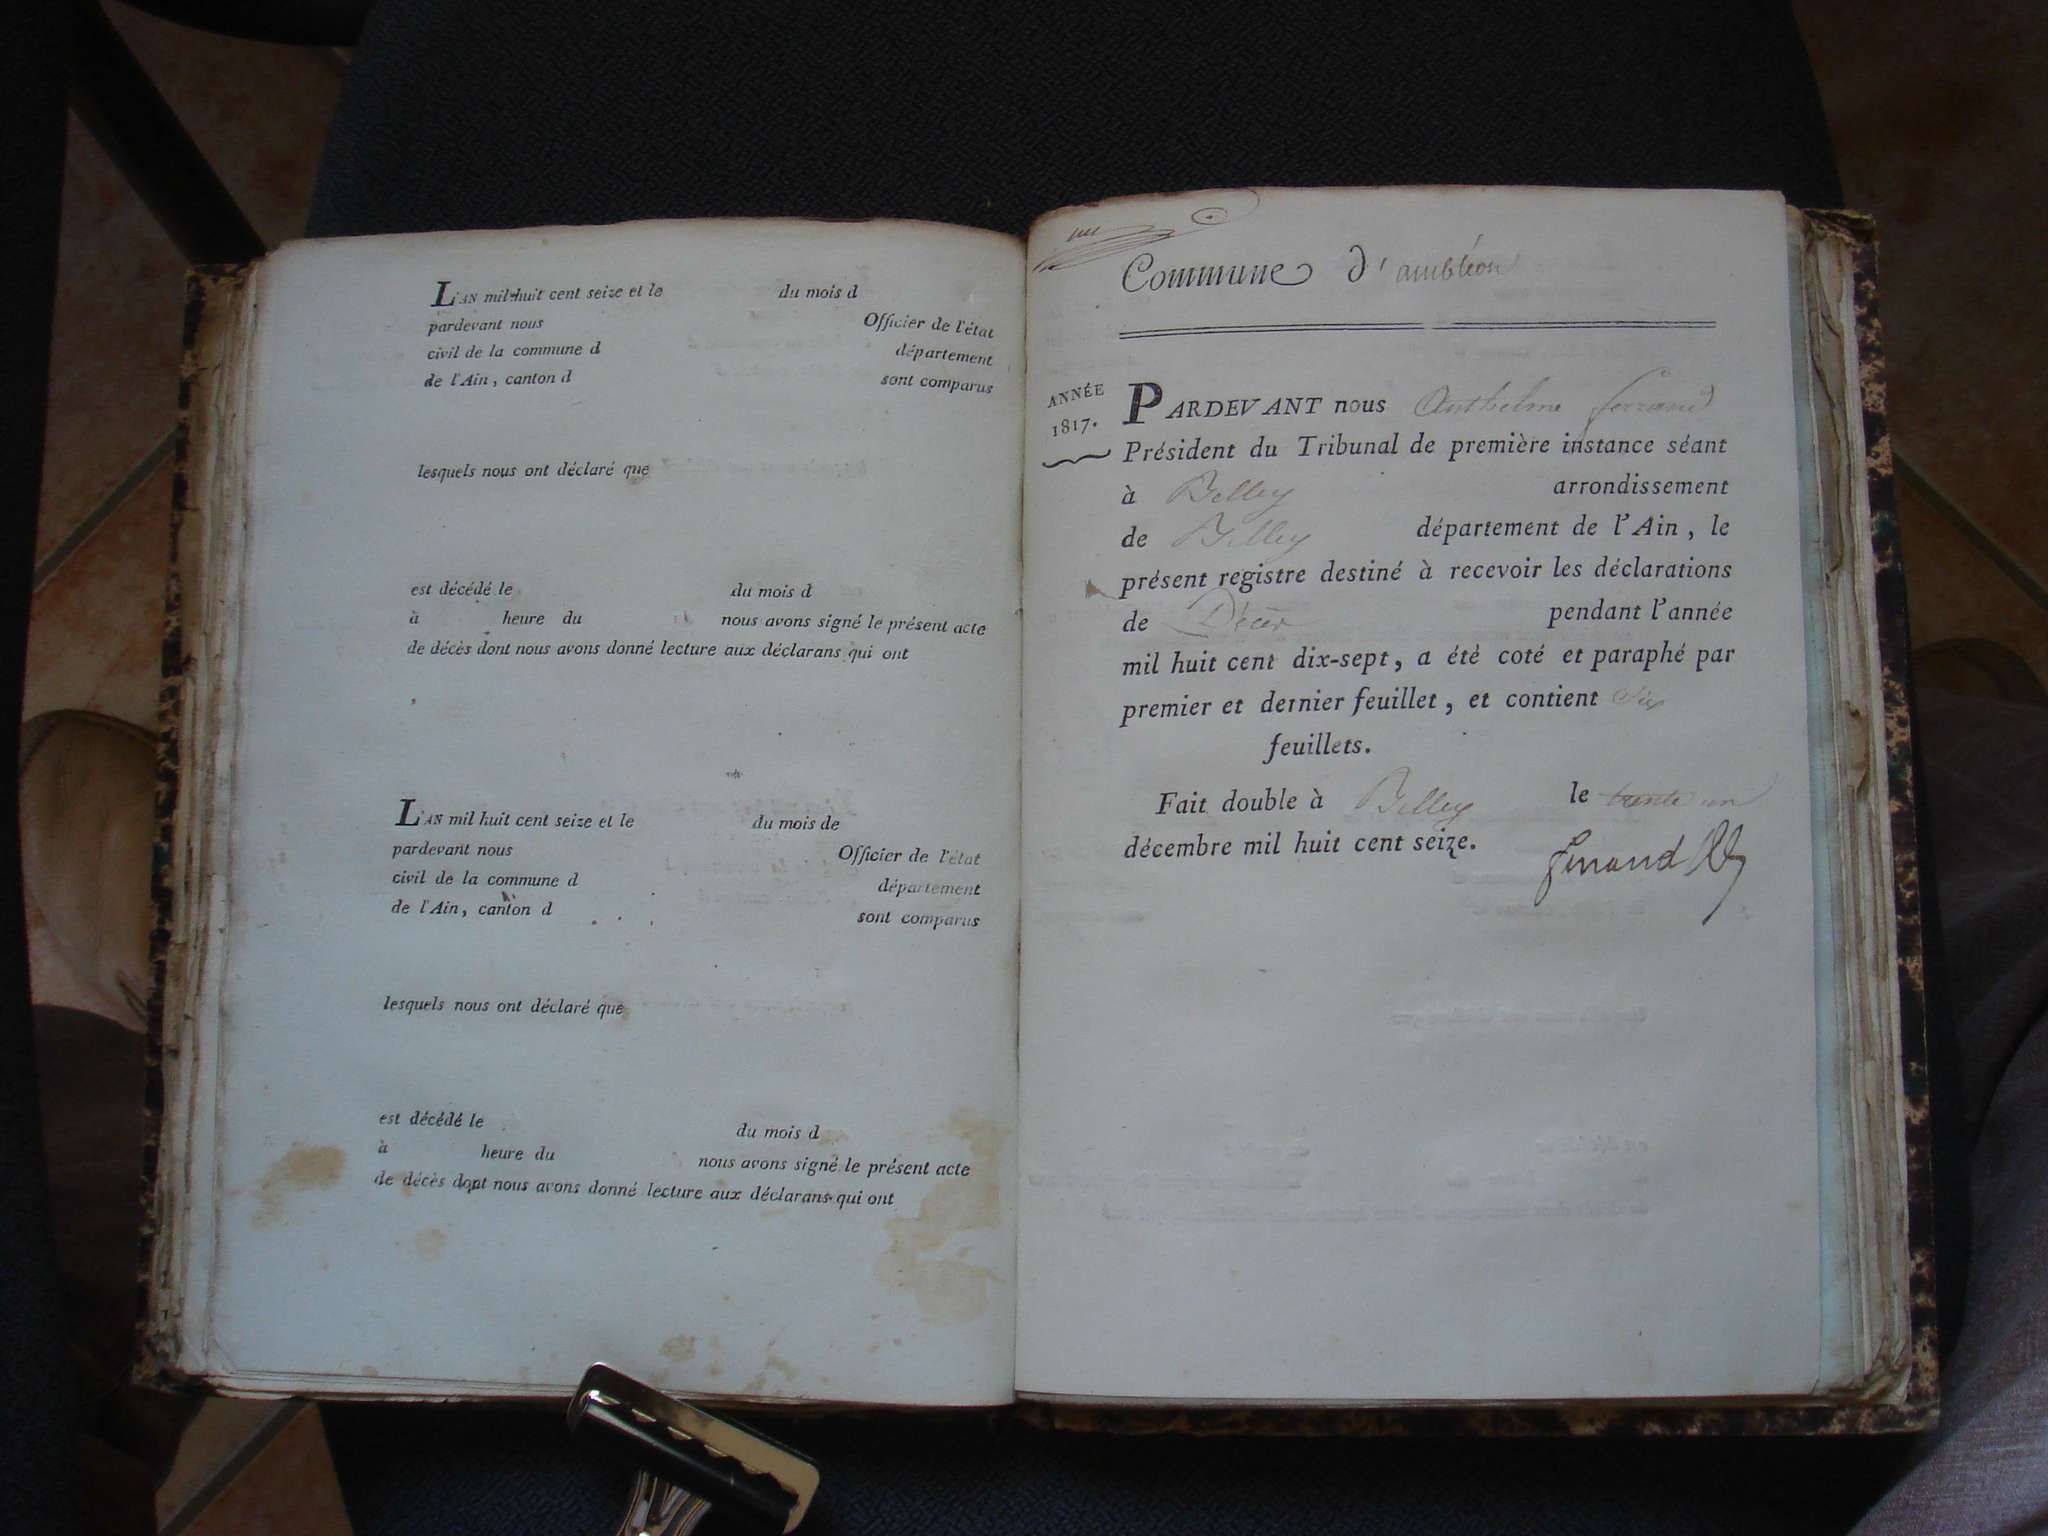 L'AN mil huit cent seize et le du mois d
pardevant nous Officier de l'état
civil de la commune d département
de l'Ain, canton d sont comparus
lesquels nous ont déclaré que
est décédé le du mois d
à heure du nous avons signé le présent acte
de décès dont nous avons donné lecture aux déclarans qui ont
L'AN mil huit cent seize et le du mois de
pardevant nous Officier de l'état
civil de la commune d département
de l'Ain, canton d sont comparus
lesquels nous ont déclaré que
est décédé le du mois d
à heure du nous avons signé le présent acte
de décès dont nous avons donné lecture aux déclarans qui ont
Commune d'ambléon
ANNÉE
1817.
PARDEVANT nous Anthelme ferrand
Président du Tribunal de première instance séant
à Belley arrondissement
de Belley département de l'Ain, le
présent registre destiné à recevoir les déclarations
de Décès pendant l'année
mil huit cent dix-sept, a été coté et paraphé par
premier et dernier feuillet, et contient Six
feuillets.
Fait double à Belley le trente un
décembre mil huit cent seize.
ferrand